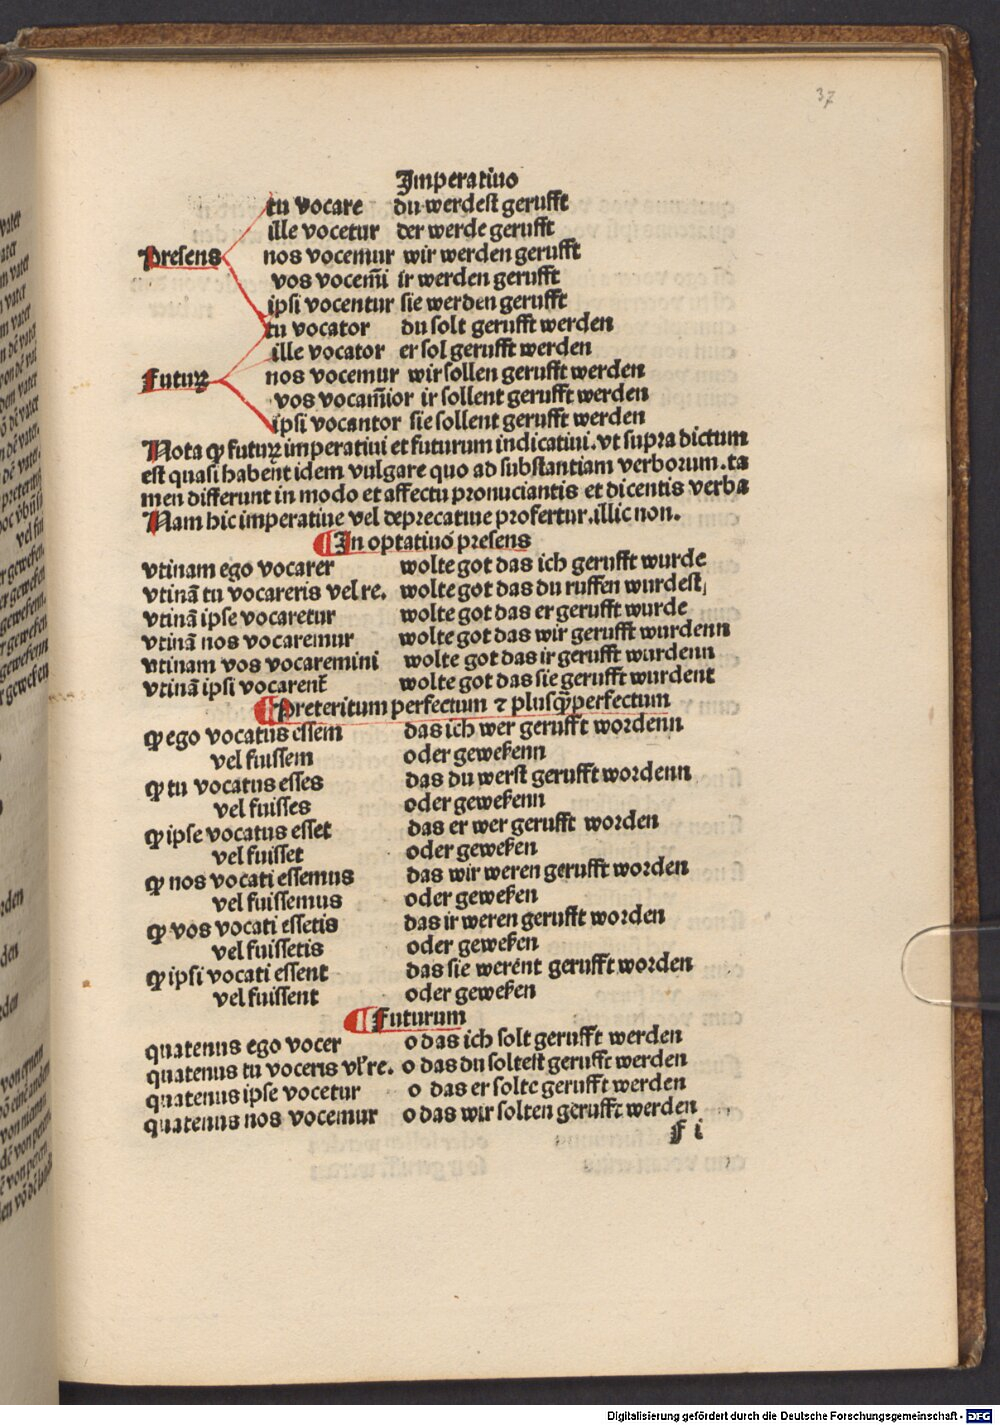 37
Imperatiuo
tu vocare du werdest gerufft
ille vocetur der werde gerufft
Presens nos vocemur wir werden gerufft
vos vocem̄i ir werden gerufft
ipsi vocentur sie werden gerufft
tu vocator du solt gerufft werden
ille vocator er sol gerufft werden
Futuꝝ nos vocemur wir sollen gerufft werden
vos vocam̄ior ir sollent gerufft werden
ipsi vocantor sie sollent gerufft werden
Nota ꝙ futuꝝ imperatiui et futurum indicatiui. vt supra dictum
est quasi habent idem vulgare quo ad substantiam verborum. ta
men differunt in modo et affectu pronuciantis et dicentis verba
Nam hic imperatiue vel deprecatiue profertur. illic non.
¶ In optatiuo presens
vtinam ego vocarer wolte got das ich gerufft wurde
vtinā tu vocareris vel re. wolte got das du ruffen wurdest
vtinā ipse vocaretur wolte got das er gerufft wurde
vtinā nos vocaremur wolte got das wir gerufft wurdenn
vtinam vos vocaremini wolte got das ir gerufft wurdenn
vtinā ipsi vocarent̄ wolte got das sie gerufft wurdent
¶ Preteritum perfectum ⁊ plusqȝperfectum
ꝙ ego vocatus essem das ich wer gerufft wordenn
vel fuissem oder gewesenn
ꝙ tu vocatus esses das du werst gerufft wordenn
vel fuisses oder gewesenn
ꝙ ipse vocatus esset das er wer gerufft worden
vel fuisset oder gewesen
ꝙ nos vocati essemus das wir weren gerufft worden
vel fuissemus oder gewesen
ꝙ vos vocati essetis das ir weren gerufft worden
vel fuissetis oder gewesen
ꝙ ipsi vocati essent das sie werent gerufft worden
vel fuissent oder gewesen
¶ Futurum
quatenus ego vocer o das ich solt gerufft werden
quatenus tu voceris vl̓ re. o das du soltest gerufft werden
quatenus ipse vocetur o das er solte gerufft werden
quatenus nos vocemur o das wir solten gerufft werden
F i
Digitalisierung gefördert durch die Deutsche Forschungsgemeinschaft - DFG